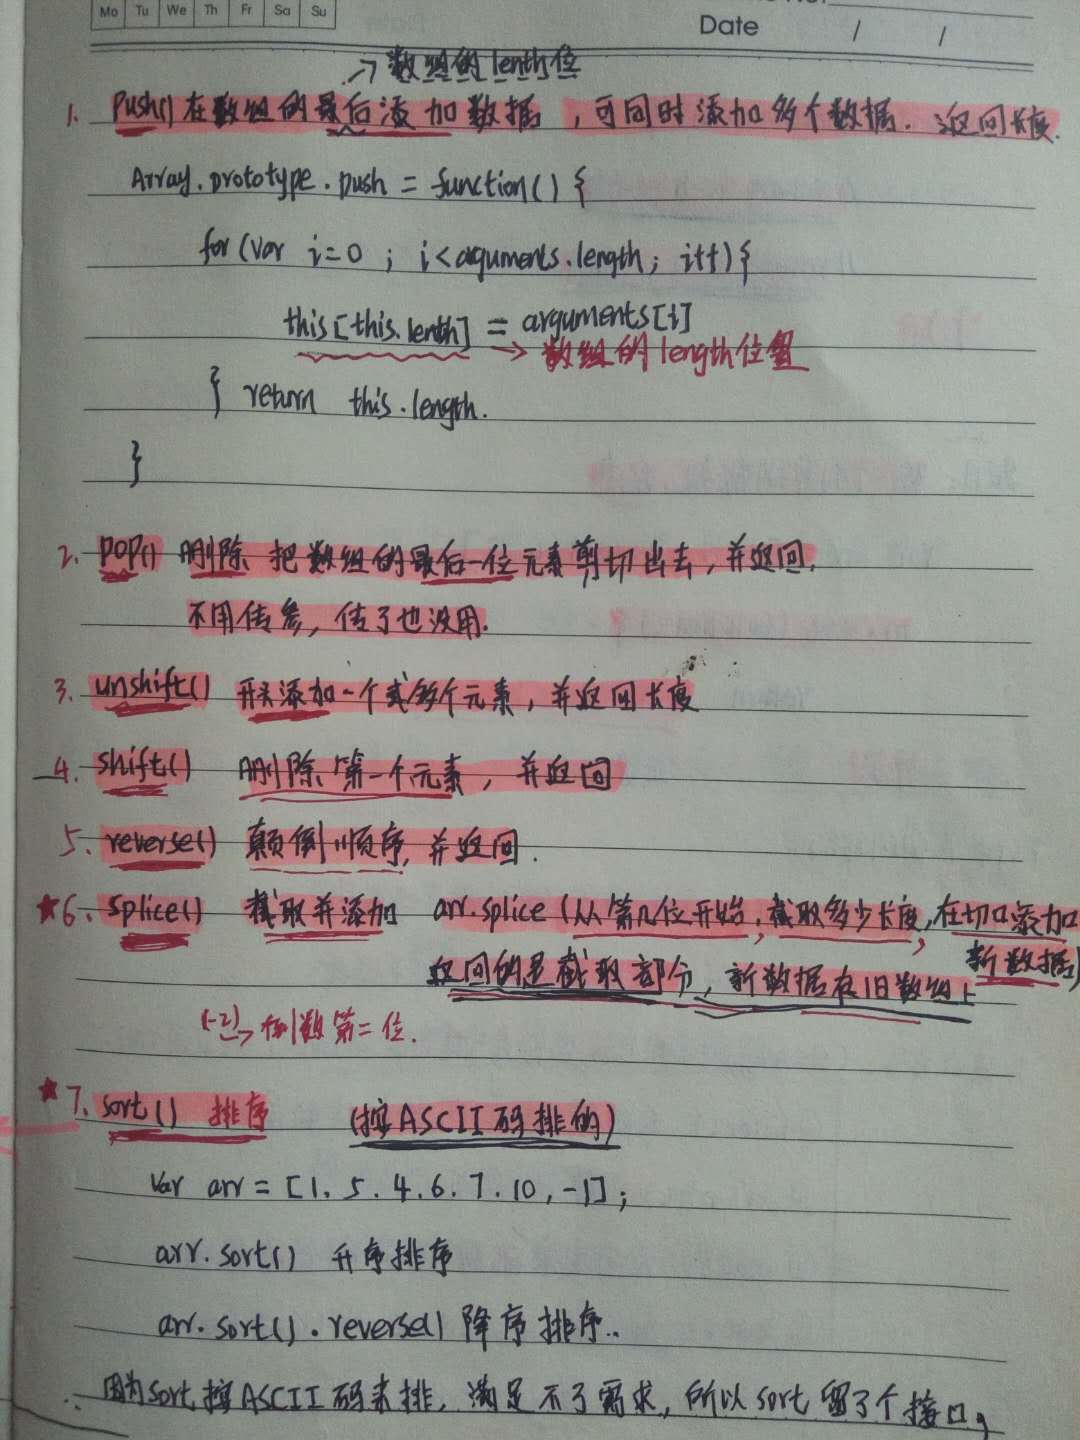 Mo Tu We Th Fr Sa Su
Date / /
→ 数组的lenth位
1. push() 在数组的最后添加数据，可同时添加多个数据. 返回长度.
Array.prototype.push = function() {
for (var i=0 ; i<arguments.length; i++) {
this[this.lenth] = arguments[i]
→ 数组的length位置
} return this.length.
}
2. pop() 删除 把数组的最后一位元素剪切出去，并返回.
不用传参，传了也没用.
3. unshift() 开头添加一个或多个元素，并返回长度
4. shift() 删除第一个元素，并返回
5. reverse() 颠倒顺序，并返回.
★6. splice() 截取并添加 arr.splice (从第几位开始，截取多少长度，在切口添加
新数据)
返回的是截取部分，新数据在旧数组上
(-2)→倒数第二位.
★7. sort() 排序 (按ASCII码排的)
var arr = [1. 5. 4. 6. 7. 10, -1];
arr.sort() 升序排序
arr.sort().reverse() 降序排序..
∴ 因为sort按ASCII码来排，满足不了需求，所以sort留了个接口，